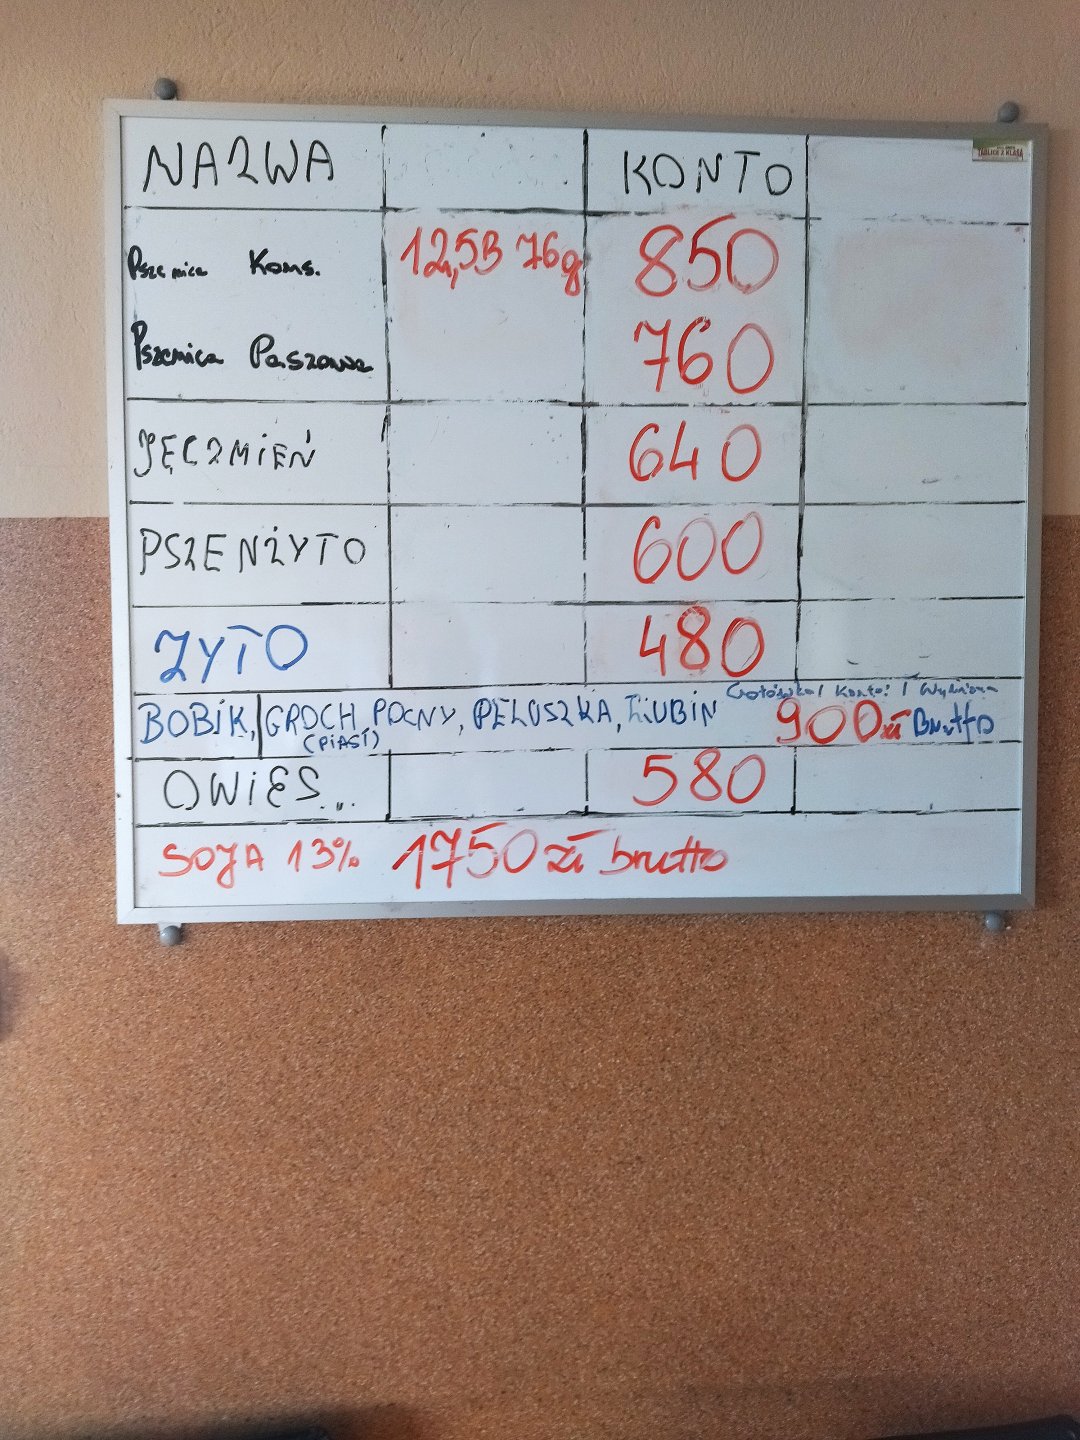 NAZWA KONTO
TABLICE Z KLASĄ
Pszenica Kons. 12,5B 76g 850
Pszenica Paszowa 760
JĘCZMIEŃ 640
PSZENŻYTO 600
ŻYTO 480
Gotówka/ Konto! / Wymiana
BOBIK, GROCH POLNY, PELUSZKA, ŁUBIN 900 zł Brutto
(PIAST)
OWIES... 580
SOJA 13% 1750 zł brutto